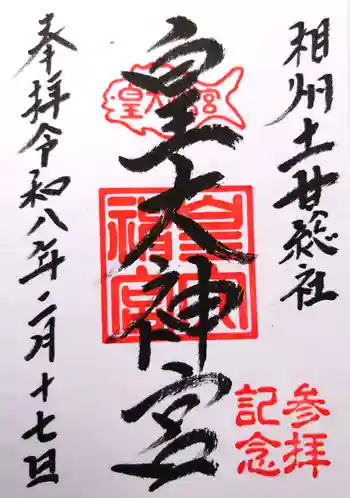 相州土甘総社
皇大神宮
皇大神宮
参拝
記念
奉拝令和八年二月十七日